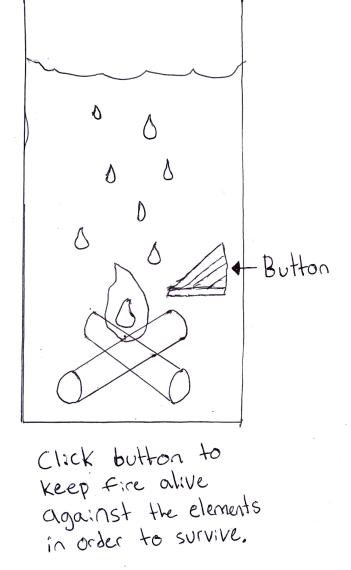 Button
Click button to
keep fire alive
against the elements
in order to survive.